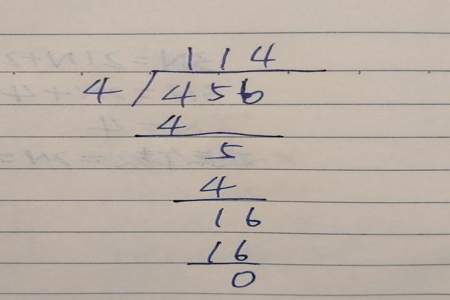 114
4/456
4
5
4
16
16
0